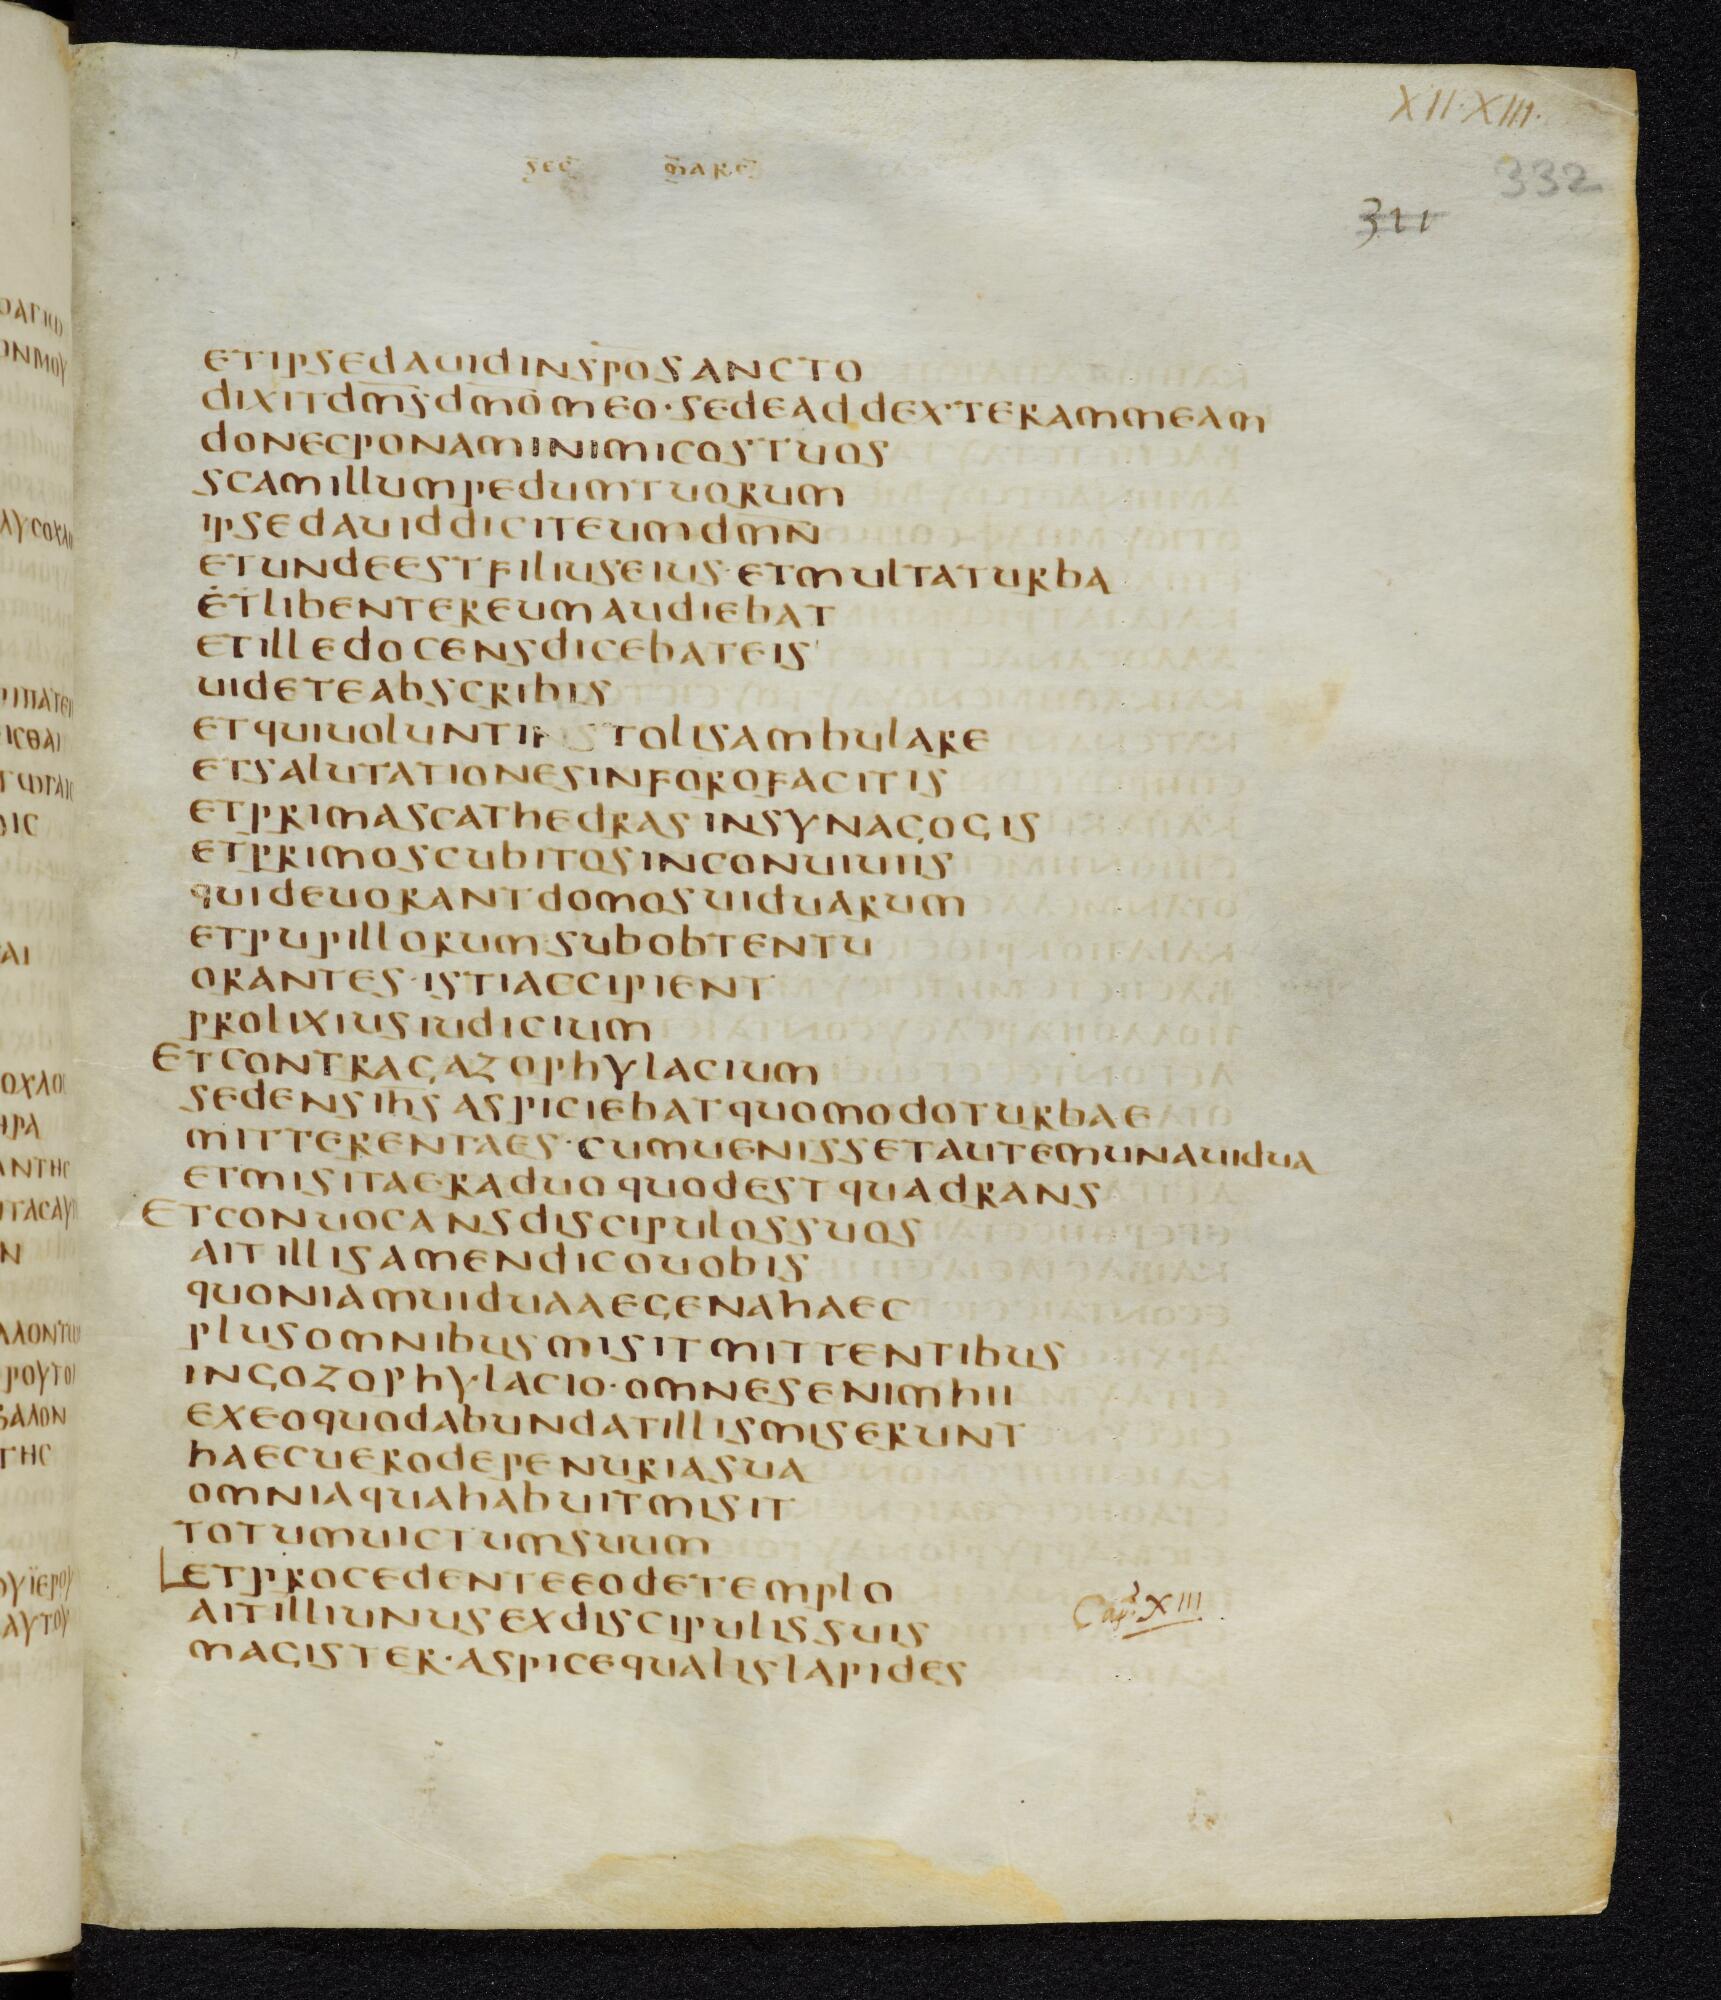 XII·XIII·
sec marc
332
311
etipsedauidinsposancto
dixitdmsdmomeo·sedeaddexterammeam
donecponaminimicostuos
scamillumpedumtuorum
ipsedauiddiciteumdmn
etundeestfiliuseius·etmultaturba
etlibentereumaudiebat
etilledocensdicebateis
uideteabscribis
etquiuoluntinstolisambulare
etsalutationesinforofacitis
etprimascathedrasinsynagogis
etprimoscubitosinconuiuiis
quideuorantdomosuiduarum
etpupillorumsubobtentu
orantes·istiaccipient
prolixiusiudicium
etcontragazophylacium
sedensihsaspiciebatquomodoturbae
mitterentaes·cumuenissetautemunauidua
etmisitaeraduoquodestquadrans
etconuocansdiscipulossuos
aitillisamendicouobis
quoniamuiduaaegenahaec
plusomnibusmisitmittentibus
ingozophylacio·omnesenimhii
exeoquodabundatillismiserunt
haecuerodepenuriasua
omniaquahabuitmisit
totumuictumsuum
etprocedenteeodetemplo
aitilliunusexdiscipulissuis
Cap. XIII
magister·aspicequalislapides